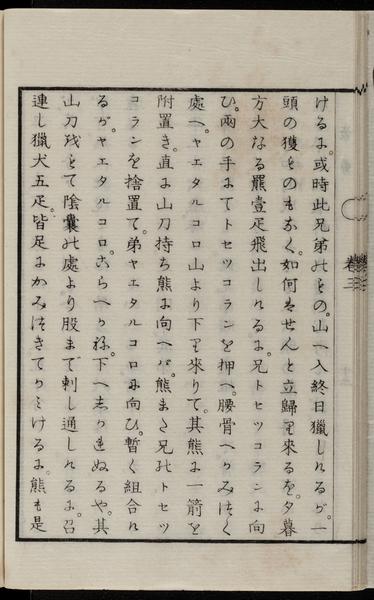 けるに。或時此兄弟のもの。山へ入終日獵しけるが。一
頭の獲ものもなく。如何はせんと立歸り來るを。夕暮
方大なる羆壹疋飛出しけるに。兄トセツコランに向
ひ。兩の手にてトセツコランを押へ。腰骨へかみつく
處へ。ヤエタルコロ山より下り來りて。其熊に一箭を
附置き。直に山刀持ち熊に向へバ。熊また兄のトセツ
コランを捨置て。弟ヤエタルコロに向ひ。暫く組合け
るが。ヤエタルコロ。こらへかね。下へしかれぬるや。其
山刀をもて陰嚢の處より股まで刺し通しけるに。召
連し獵犬五疋。皆足にかみつきてかゝりけるに。熊も是
卷三